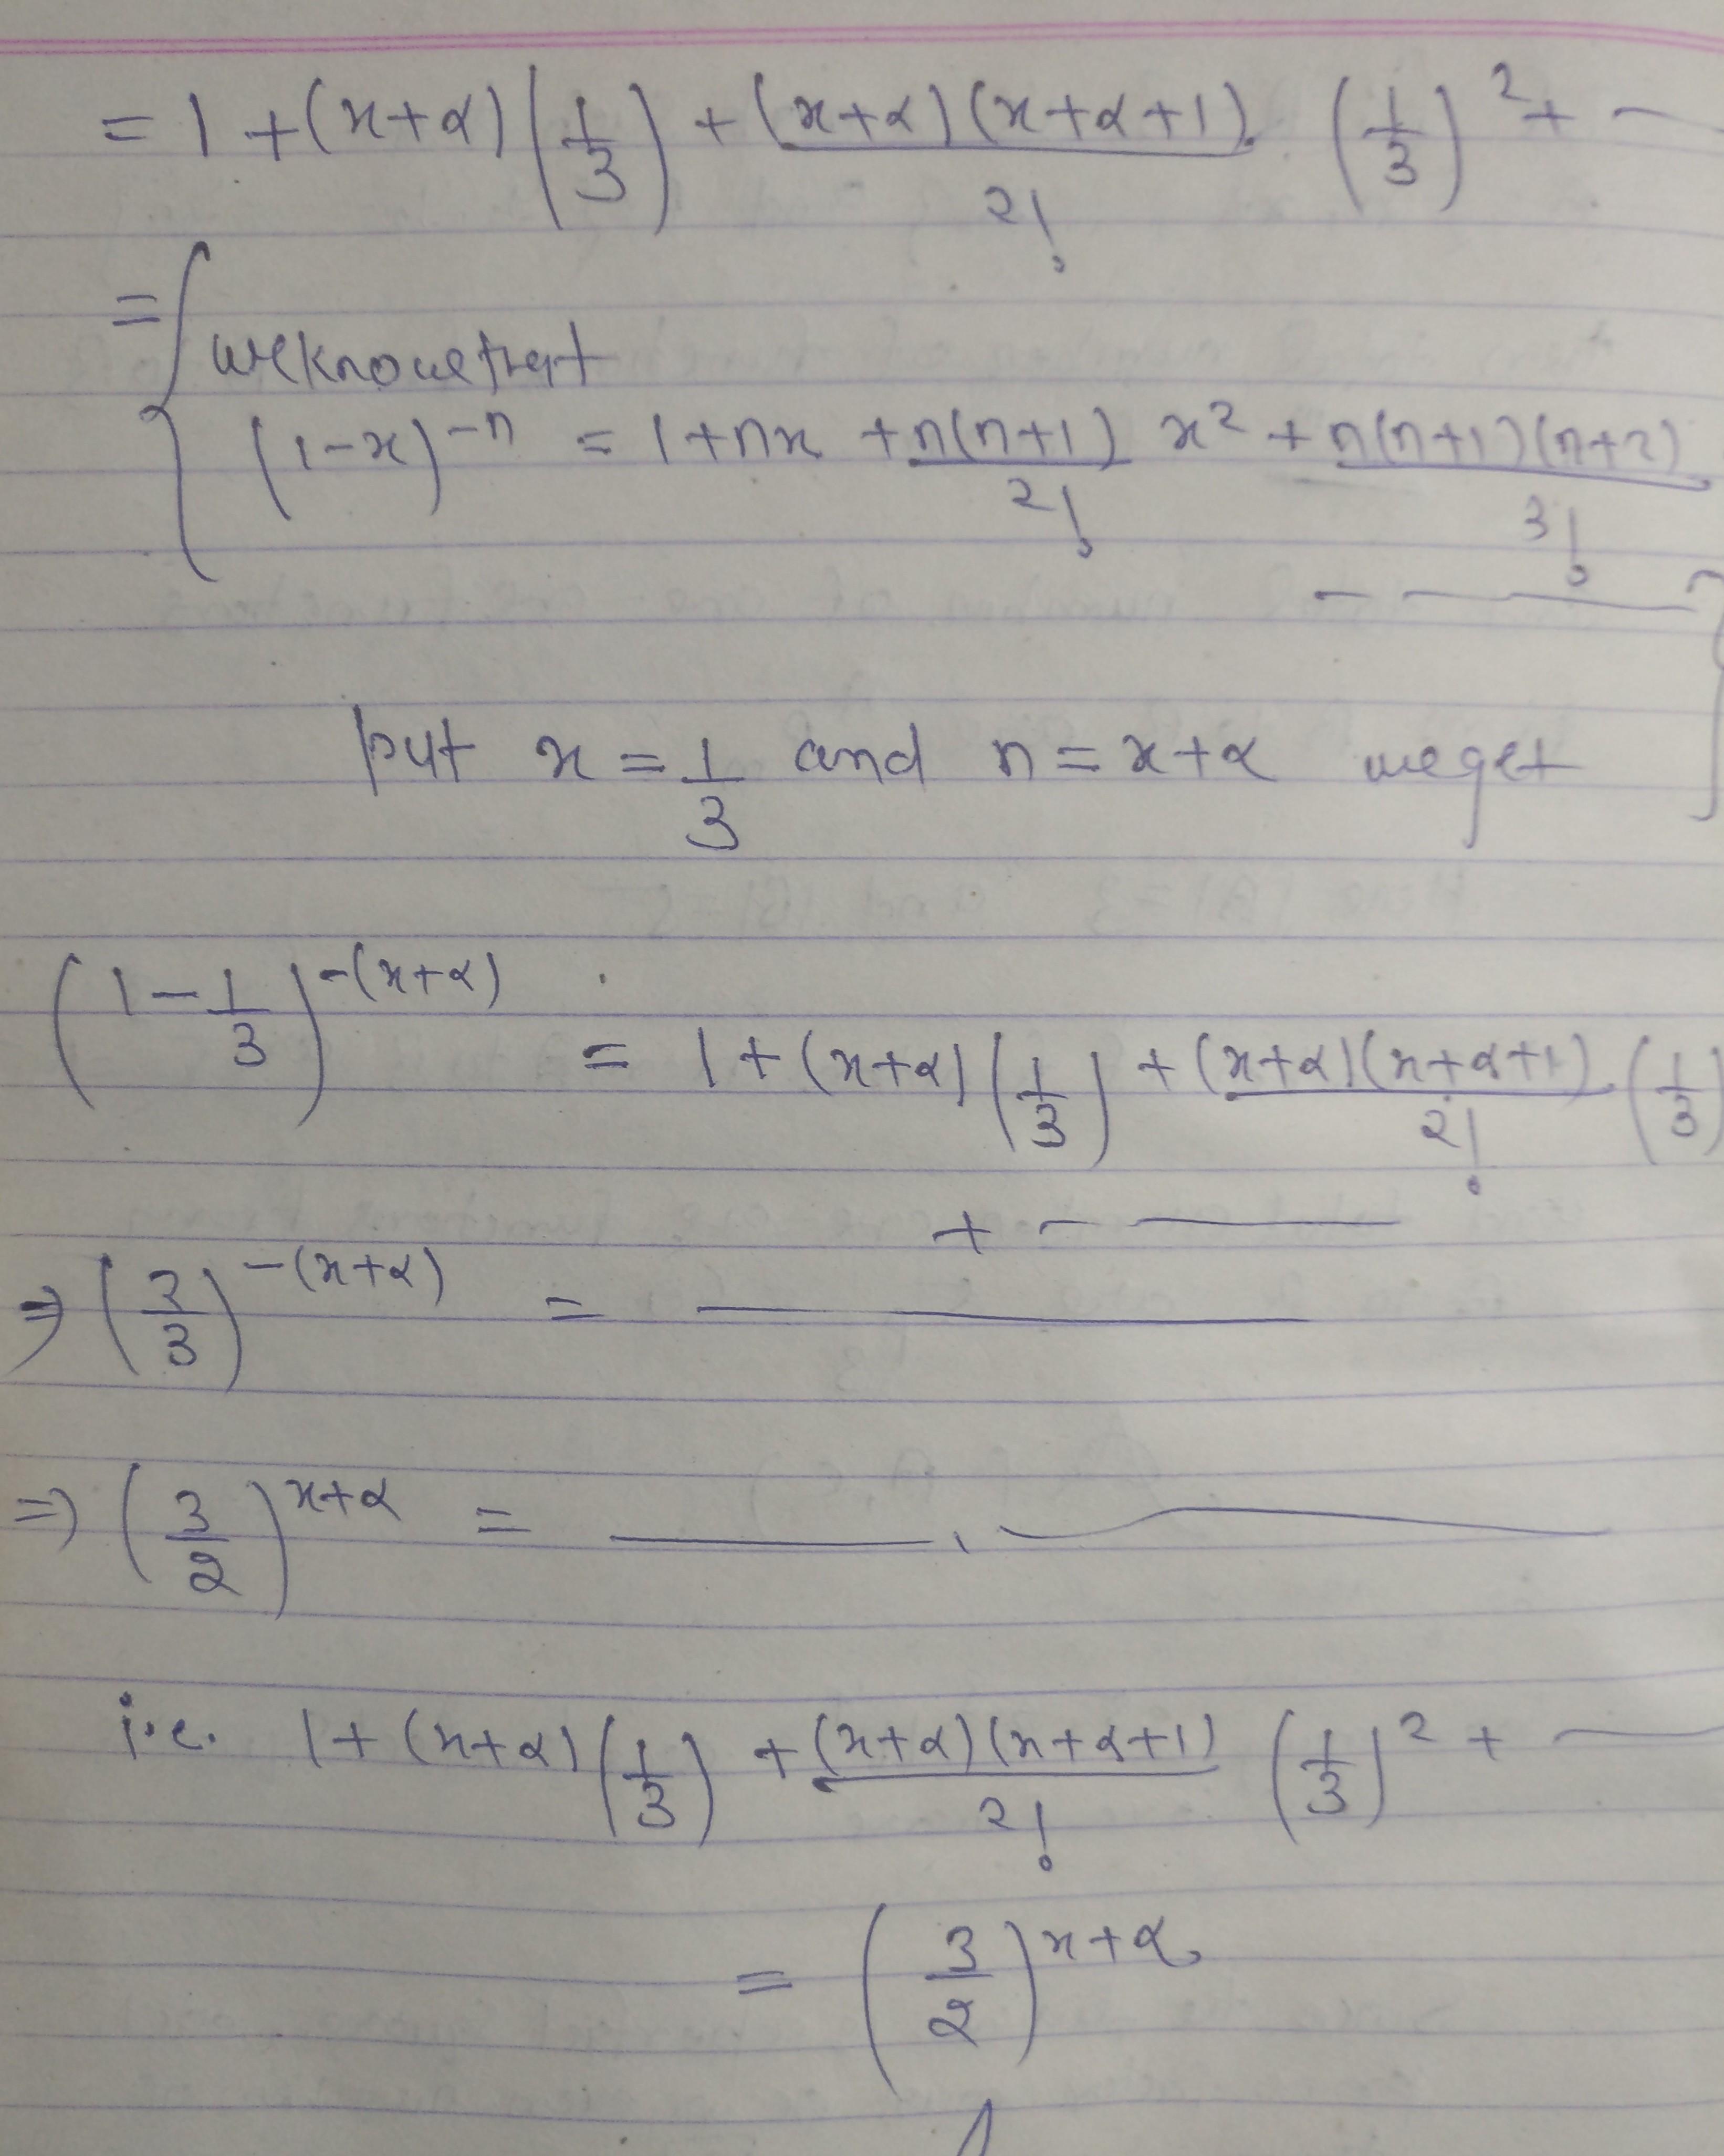 = 1 + (x+α) (1/3) + (x+α)(x+α+1)/2! (1/3)² + —
= { we know that
(1-x)^-n = 1+nx + n(n+1)/2! x² + n(n+1)(n+2)/3!
- — — }
put x = 1/3 and n = x+α we get
(1 - 1/3)^-(x+α) = 1 + (x+α) (1/3) + (x+α)(x+α+1)/2! (1/3)
+ - —
⇒ (2/3)^-(x+α) = — —
⇒ (3/2)^x+α = — . —
i.e. 1 + (x+α) (1/3) + (x+α)(x+α+1)/2! (1/3)² + —
= (3/2)^x+α